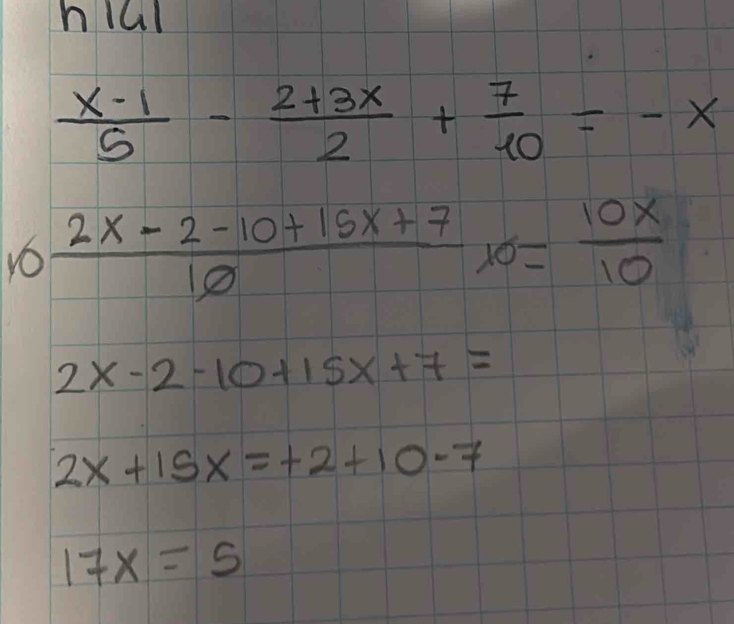 (x-1)/5 - (2+3x)/2 + 7/10 = -x
10 (2x-2-10+15x+7)/10 10 = 10x/10
2x-2-10+15x+7=
2x+15x=+2+10-7
17x=5